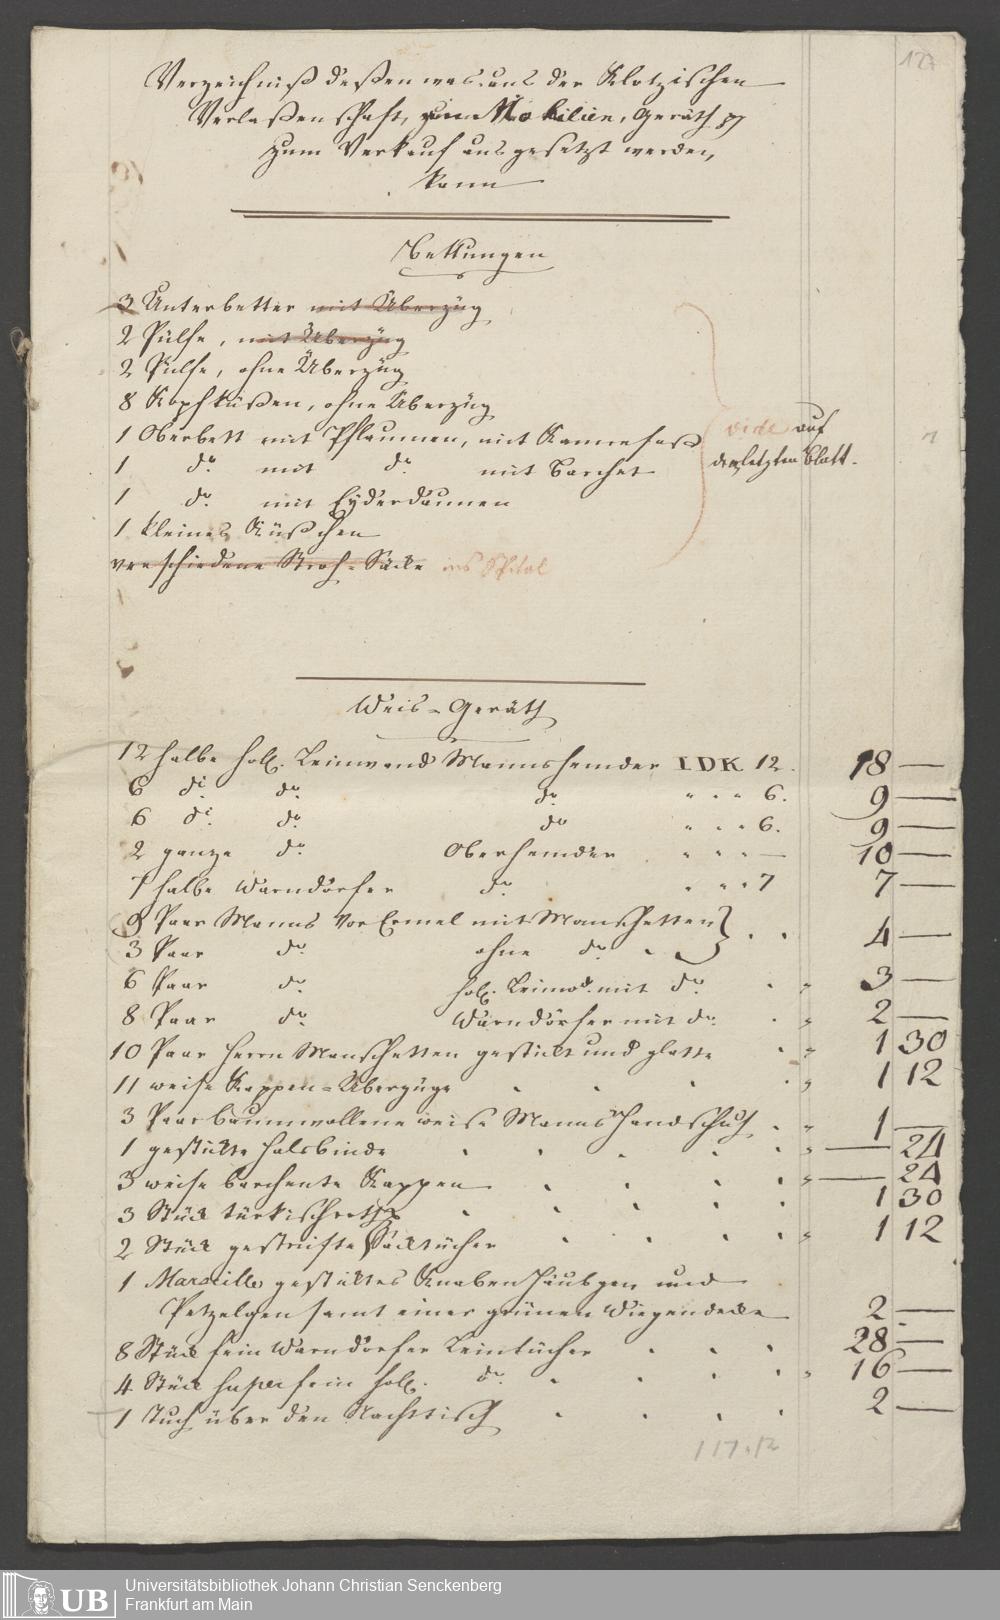 127
Verzeichniß deßen was aus der Klotzischen
Verlaßenschaft, an Mobilien, Geräth pp
zum Verkauf ausgesetzt werden
kann
Bettungen
3 Unterbetter mit Überzüg
2 Pülfe, mit Überzüg
2 Pülfe, ohne Überzüg
8 Kopfküßen, ohne Überzüg
1 Oberbett mit Pflaumen, mit Kannefaß
1 do. mit do. mit Barchet
1 do. mit Eyderdaunen
1 kleines Küßchen
verschiedene Stroh-Säcke ins Spital
vide auf
dem letzten Blatt.
Weis-Geräth
12 halbe holl. Leinwand Mannshemder I.D.K 12. 18 —
6 do. do. do. " " " 6. 9 —
6 do. do. do " " " 6. 9 —
2 ganze do. Oberhemder " " " — 10 —
7 halbe Warndörfer do. " " " 7 7 —
9 Paar Manns Vor Ermel mit Manschetten }
3 Paar do. ohne do. 4 —
6 Paar do. holl. Leinwd. mit do. " 3 —
8 Paar do. Warndörfer mit do. " 2 —
10 Paar Herrn Manschetten gestickt und glatte " 1 30
11 weise Kappen-Überzüge " 1 12
3 Paar baumwollene weise Manns Handschuh " 1 —
1 gestickte Halsbinde " — 24
3 weise barchente Kappen " — 24
3 Stück türkischroth 1 30
2 Stück gestreifte Sacktücher " 1 12
1 Marseille gesticktes Knaben Häubgen und
Petzelgen samt einer grünen Wiegendecke 2 —
8 Stück fein Warndörfer Leintücher 28 —
4 Stück super fein holl. do. " 16 —
1 Tuch über den Nachttisch 2 —
117.12
UB
Universitätsbibliothek Johann Christian Senckenberg
Frankfurt am Main